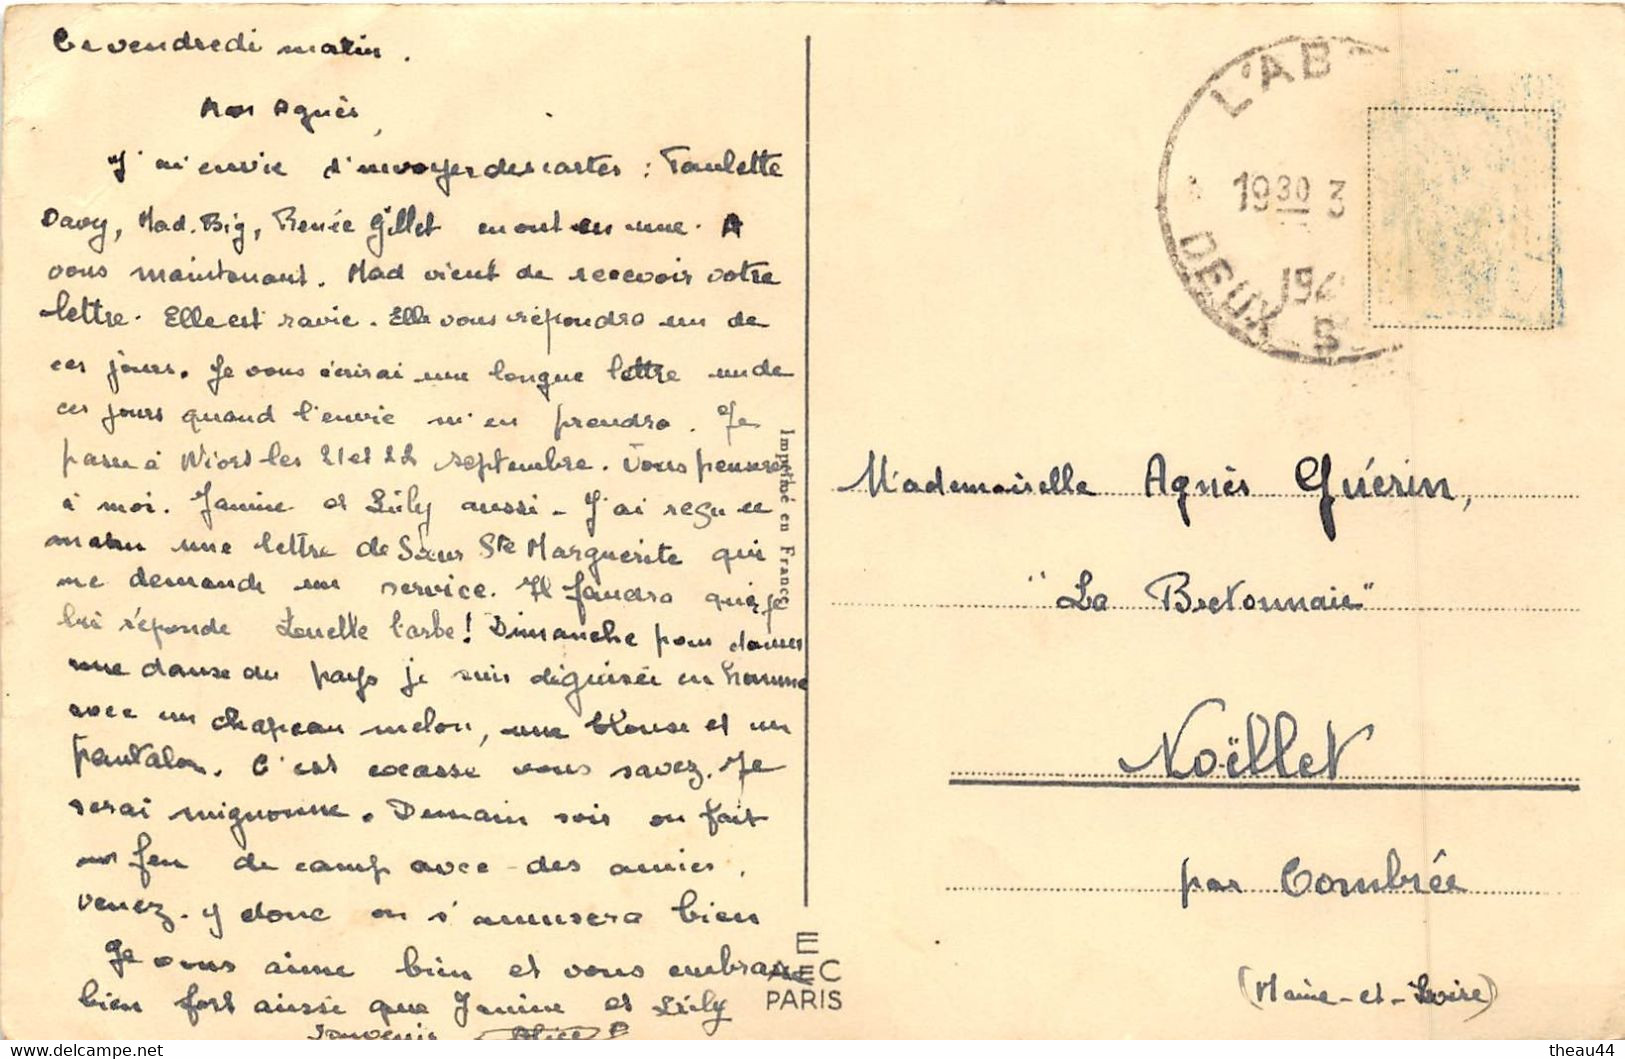 Ce vendredi matin.
Mon Agnès,
J'ai envie d'envoyer des cartes : Paulette
Davy, Mad. Big, Renée Gillet en ont eu une. A
vous maintenant. Mad vient de recevoir votre
lettre. Elle est ravie. Elle vous répondra un de
ces jours. Je vous écrirai une longue lettre un de
ces jours quand l'envie m'en prendra. Je
passe à Niort les 21 et 22 septembre. Vous penserez
à moi. Janine et Lily aussi - J'ai reçu ce
matin une lettre de Sœur Ste Marguerite qui
me demande un service. Il faudra que je
lui réponde ! Dimanche pour danser
une danse du pays je suis déguisée en homme
avec un chapeau melon, une blouse et un
pantalon. C'est cocasse vous savez. Je
serai mignonne. Demain soir on fait
un feu de camp avec des amies.
Venez-y donc on s'amusera bien
Je vous aime bien et vous embrasse
bien fort ainsi que Janine et Lily
Imprimé en France
E
AEC
PARIS
L'AB
1930 3
194
DEUX S
Mademoiselle Agnès Guérin,
"La Bretonnaie"
Noëllet
par Combrée
(Maine-et-Loire)
theau44